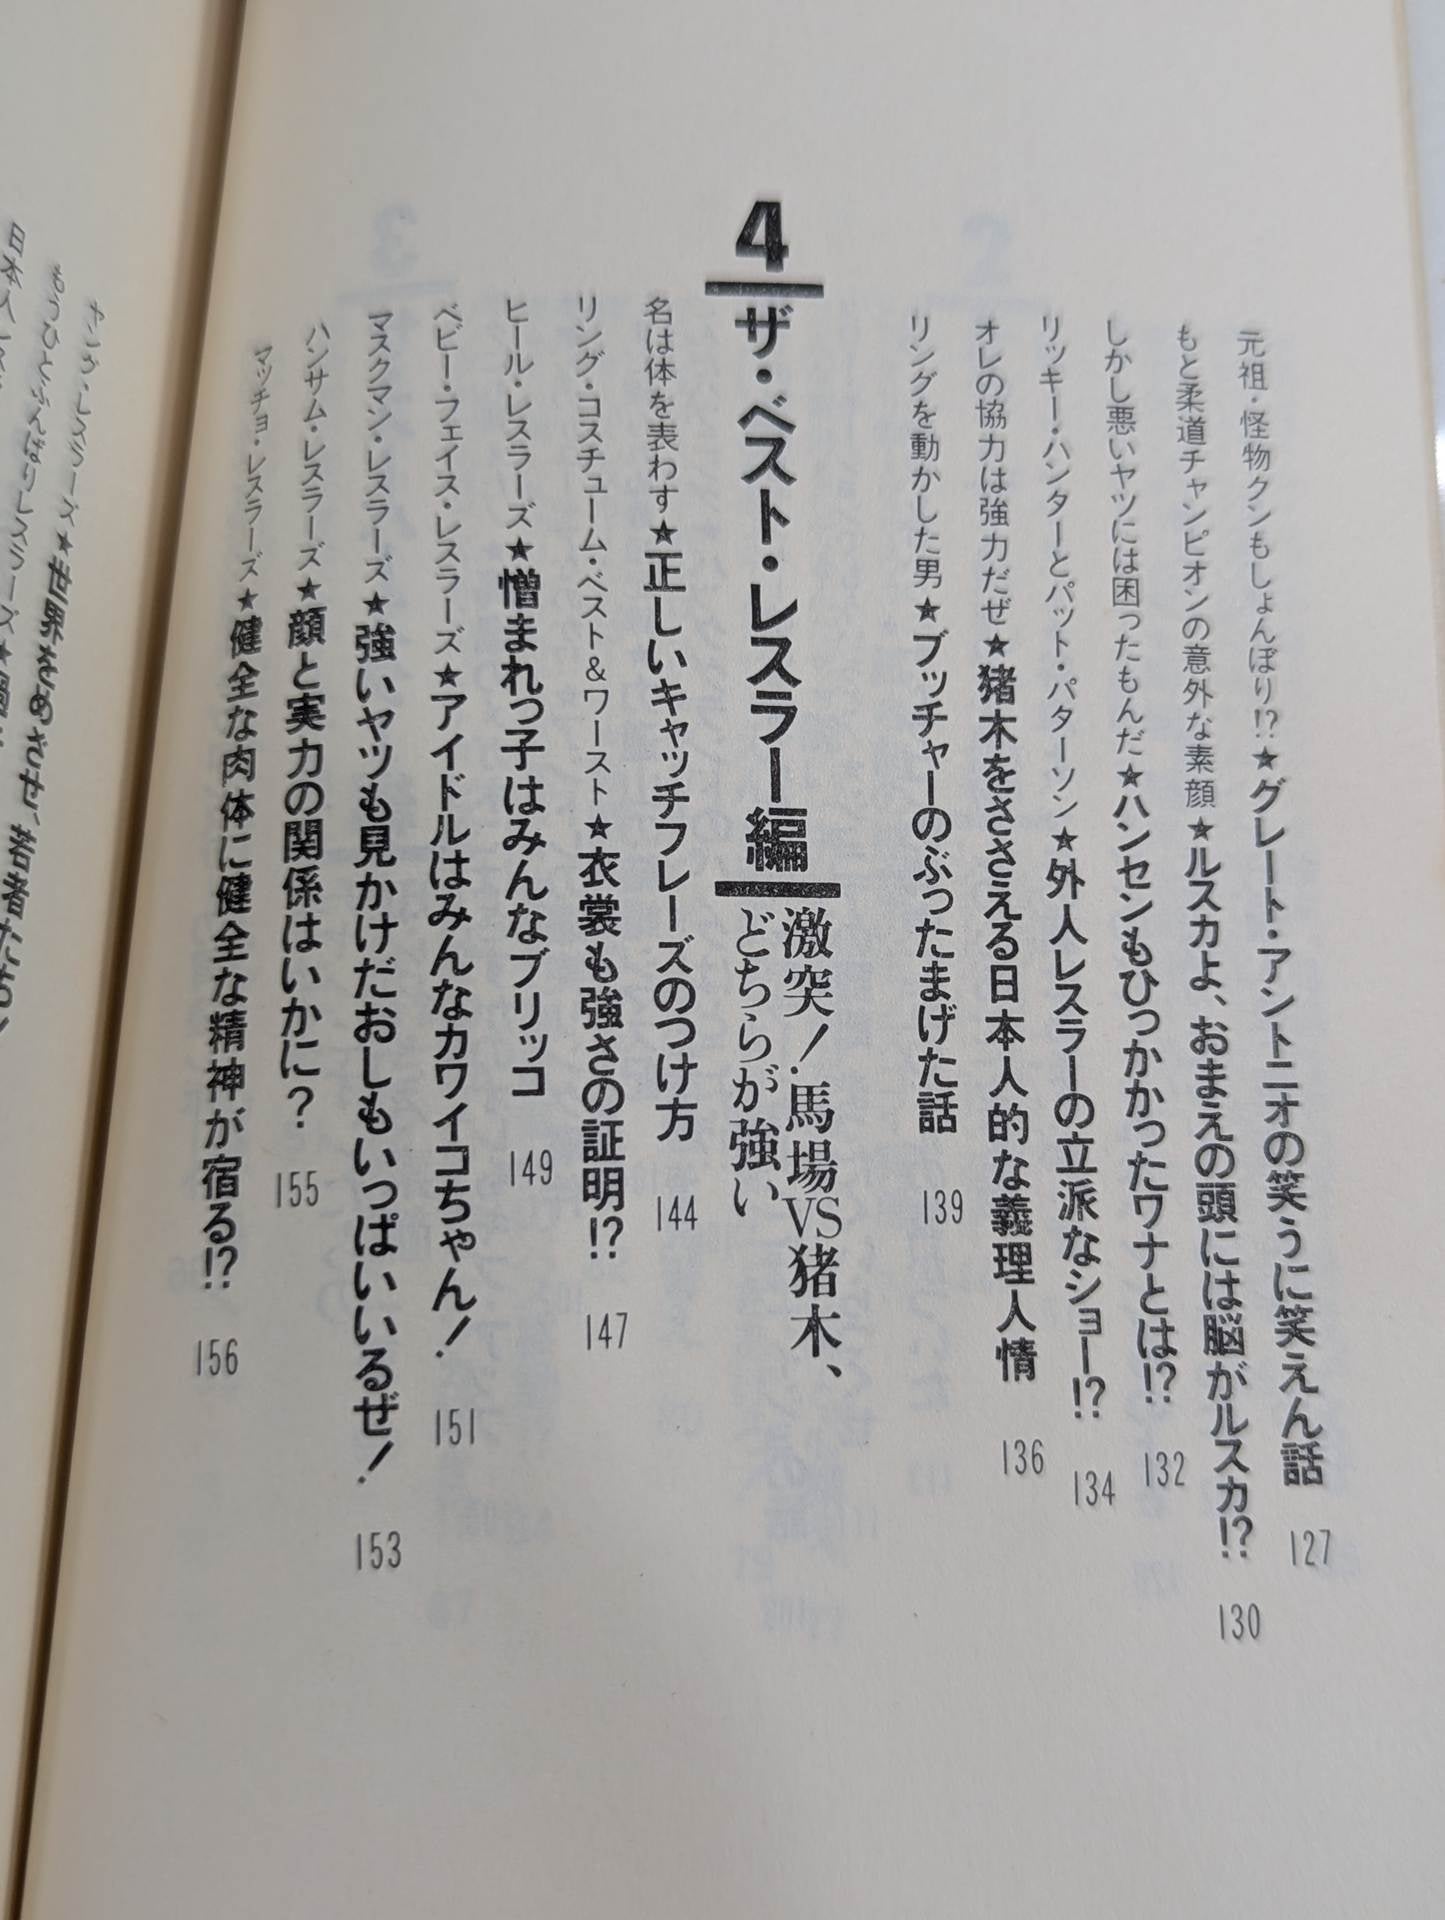 元祖・怪物クンもしょんぼり!?★グレート・アントニオの笑うに笑えん話 127
もと柔道チャンピオンの意外な素顔★ルスカよ、おまえの頭には脳がルスカ!? 130
しかし悪いヤツには困ったもんだ★ハンセンもひっかかったワナとは!? 132
リッキー・ハンターとパット・パターソン★外人レスラーの立派なショー!? 134
オレの協力は強力だぜ★猪木をささえる日本人的な義理人情 136
リングを動かした男★ブッチャーのぶったまげた話 139
4 ザ・ベスト・レスラー編
激突!馬場VS猪木、
どちらが強い
名は体を表わす★正しいキャッチフレーズのつけ方 144
リング・コスチューム・ベスト&ワースト★衣裳も強さの証明!? 147
ヒール・レスラーズ★憎まれっ子はみんなブリッコ 149
ベビー・フェイス・レスラーズ★アイドルはみんなカワイコちゃん! 151
マスクマン・レスラーズ★強いヤツも見かけだおしもいっぱいいるぜ! 153
ハンサム・レスラーズ★顔と実力の関係はいかに? 155
マッチョ・レスラーズ★健全な肉体に健全な精神が宿る!? 156
ヤング・レスラーズ★世界をめざせ、若者たち!
もうひとふんばりレスラーズ★
日本人